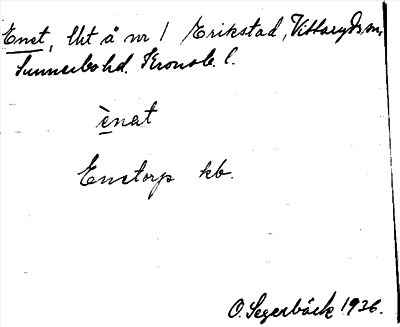 Enet, lht å nr 1 Erikstad, Vittaryds sn,
Sunnerbo hd. Kronob. l.
ènat
Enetorp kb.
O. Segerbäck 1936.